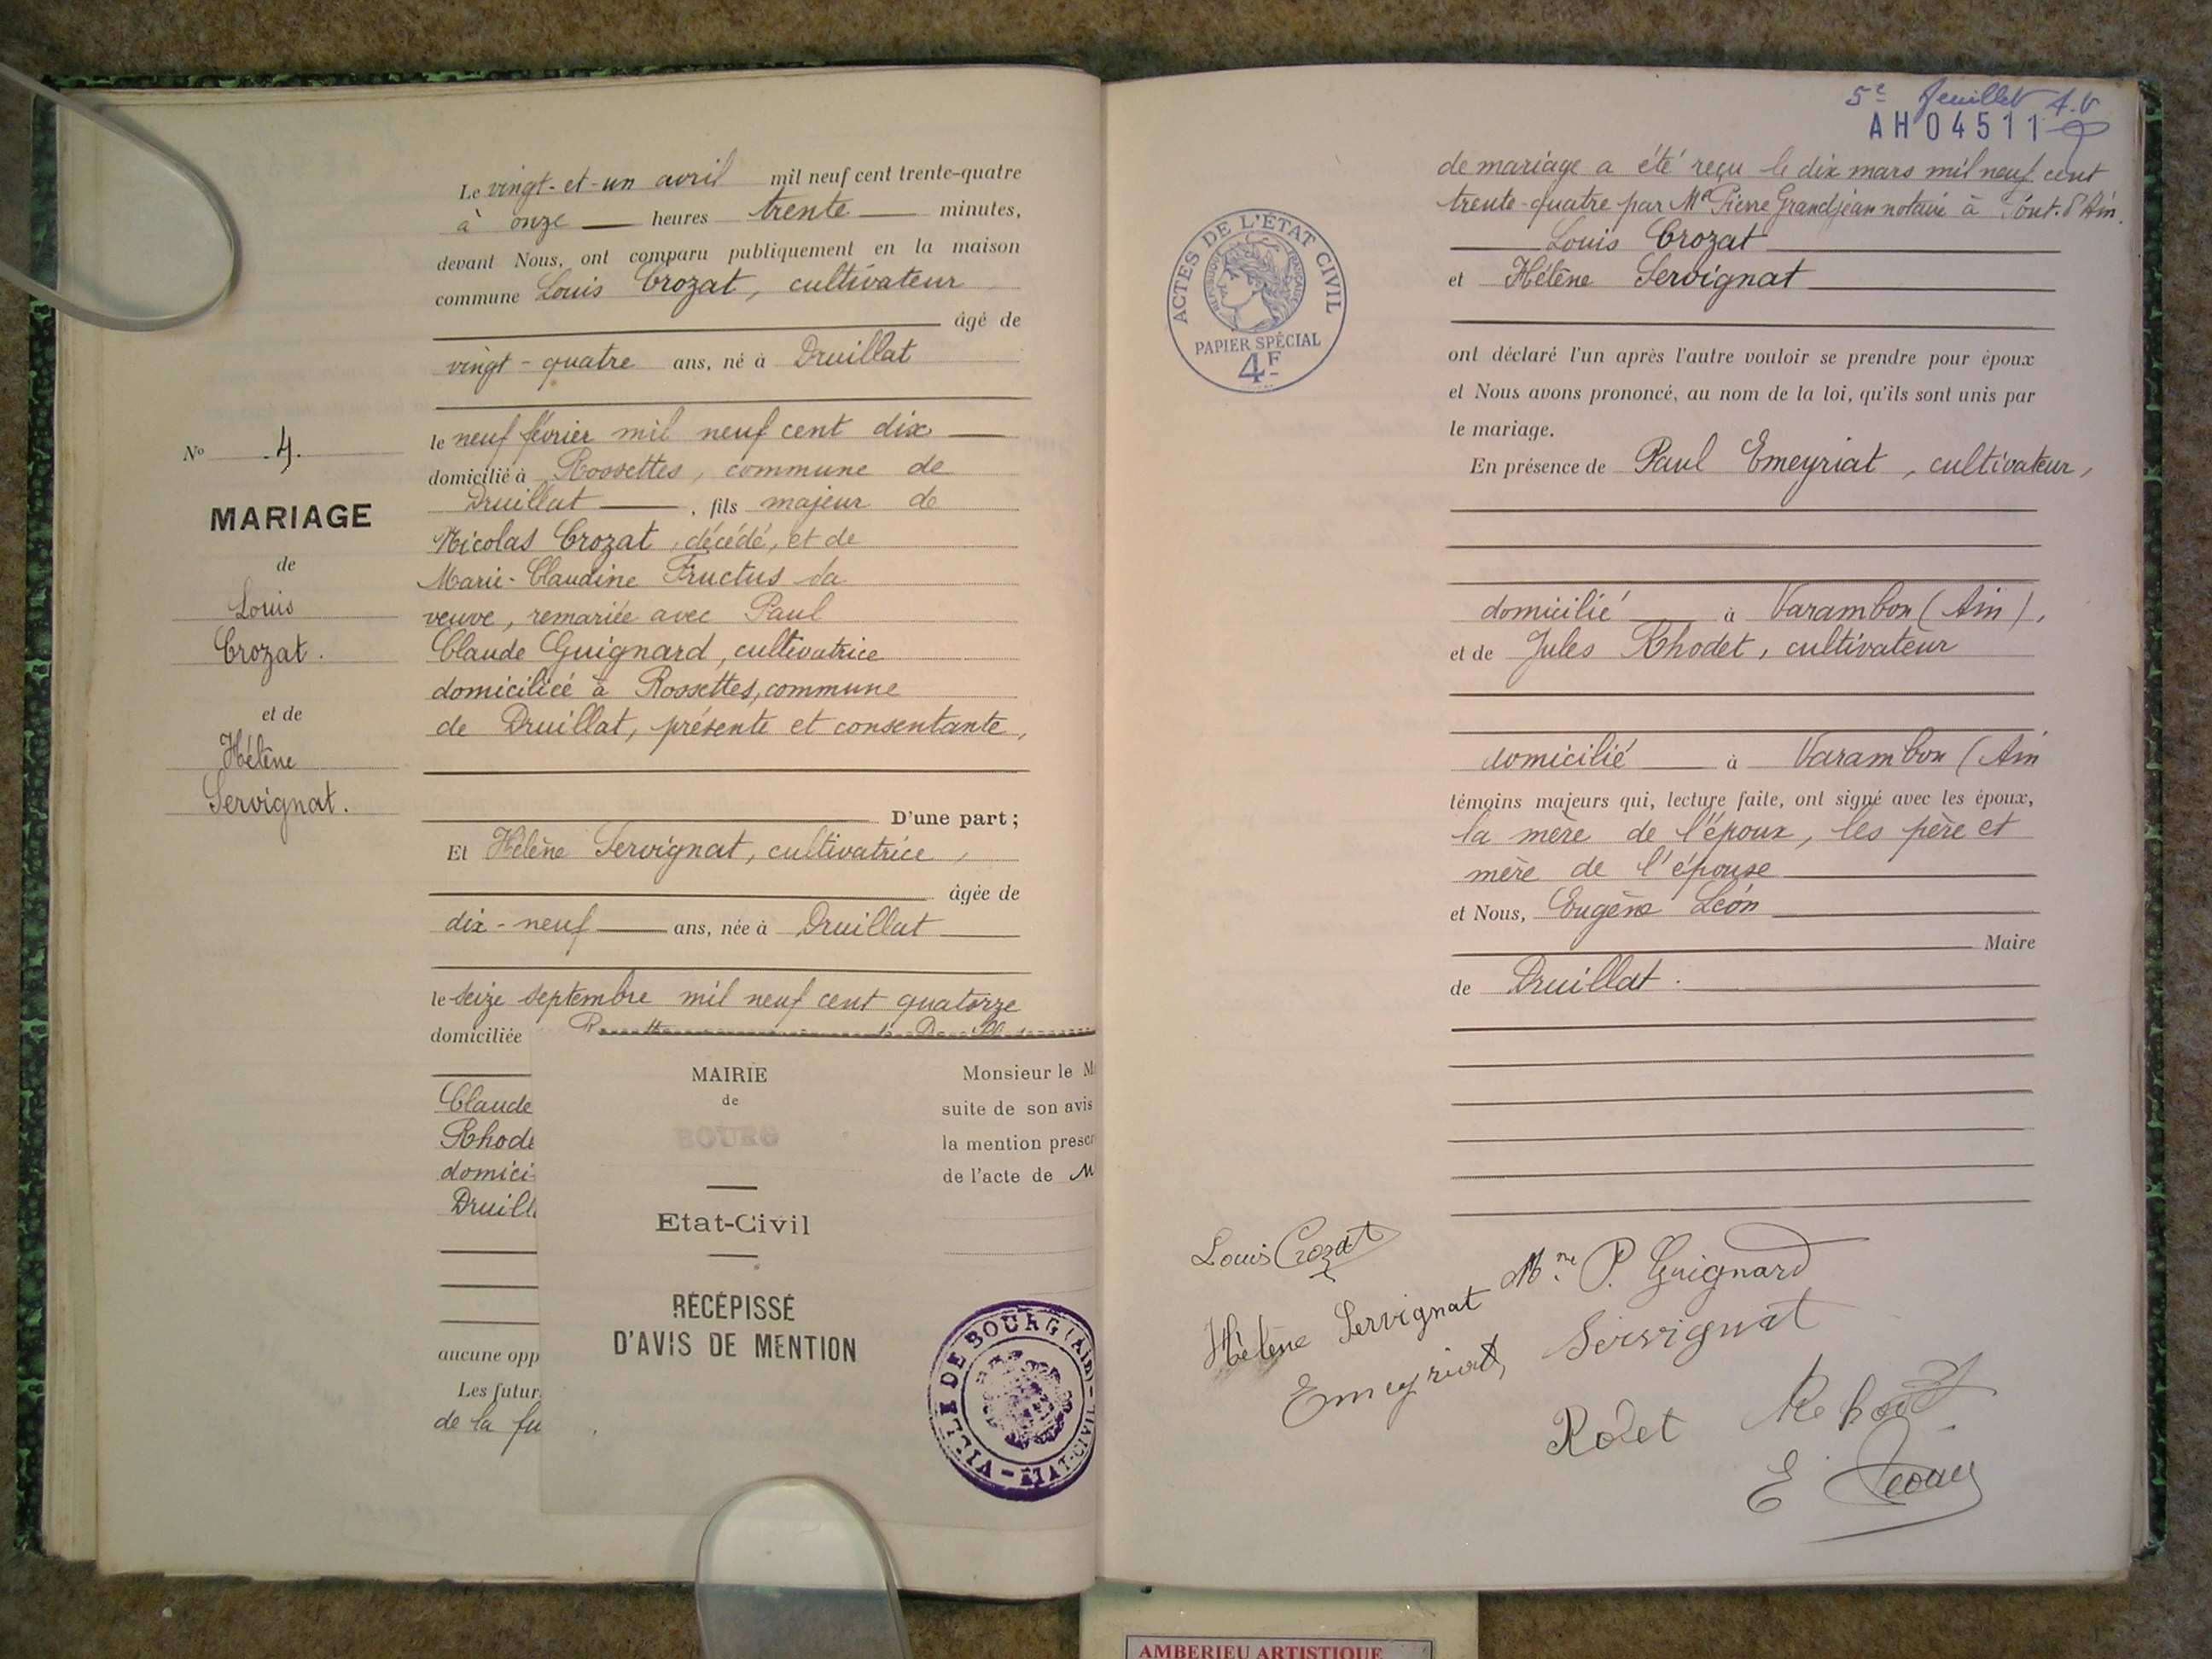 Le vingt-et-un avril mil neuf cent trente-quatre
à onze heures trente minutes,
devant Nous, ont comparu publiquement en la maison
commune Louis Crozat, cultivateur
âgé de
vingt-quatre ans, né à Druillat
le neuf février mil neuf cent dix
domicilié à Rossettes, commune de
Druillat, fils majeur de
Nicolas Crozat, décédé, et de
Marie-Claudine Fructus sa
veuve, remariée avec Paul
Claude Guignard, cultivatrice
domiciliée à Rossettes, commune
de Druillat, présente et consentante,
D'une part;
Et Hélène Servignat, cultivatrice,
âgée de
dix-neuf ans, née à Druillat
le seize septembre mil neuf cent quatorze
domiciliée
Claude
Rhode
domici
Druill
aucune opp
Les futur
de la fu
No 4.
MARIAGE
de
Louis
Crozat.
et de
Hélène
Servignat.
MAIRIE
de
BOURG
Etat-Civil
RÉCÉPISSÉ
D'AVIS DE MENTION
Monsieur le M
suite de son avis
la mention prescr
de l'acte de M
VILLE DE BOURG (AIN) - ÉTAT-CIVIL
5e feuillet
AH04511
de mariage a été reçu le dix mars mil neuf cent
trente-quatre par Me Pierre Grandjean notaire à Pont-d'Ain.
Louis Crozat
et Hélène Servignat
ont déclaré l'un après l'autre vouloir se prendre pour époux
et Nous avons prononcé, au nom de la loi, qu'ils sont unis par
le mariage.
En présence de Paul Emeyriat, cultivateur,
domicilié à Varambon (Ain),
et de Jules Rhodet, cultivateur
domicilié à Varambon (Ain
témoins majeurs qui, lecture faite, ont signé avec les époux,
la mère de l'époux, les père et
mère de l'épouse
et Nous, Eugène Léon
Maire
de Druillat.
ACTES DE L'ÉTAT CIVIL
RÉPUBLIQUE FRANÇAISE
PAPIER SPÉCIAL
4F
Louis Crozat
Mme P. Guignard
Hélène Servignat
Servignat
Emeyriat
Rodet
E Léon
AMBERIEU ARTISTIQUE